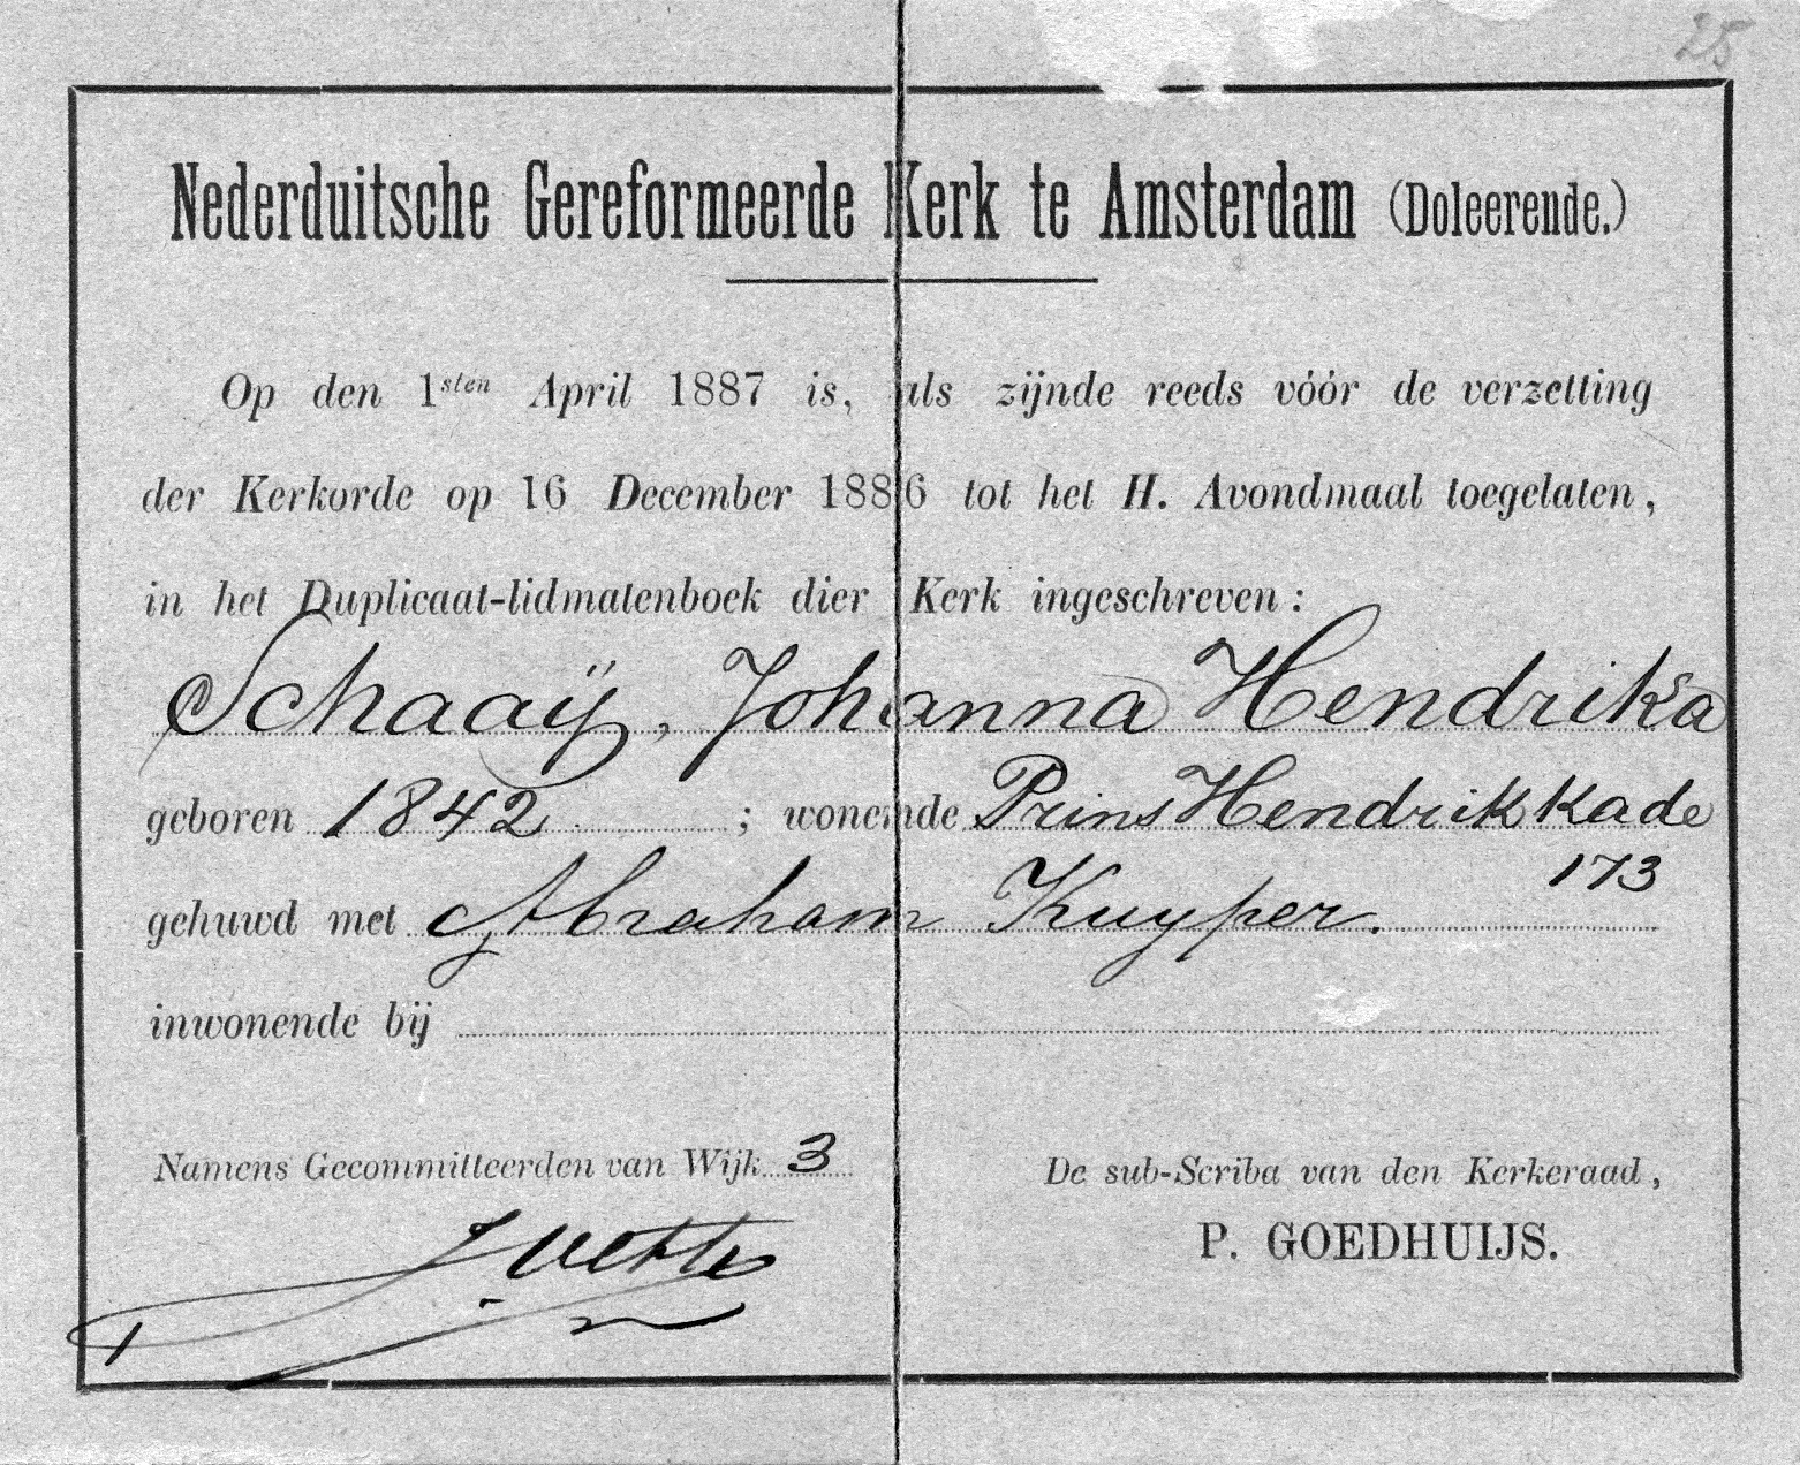 25
Nederduitsche Gereformeerde Kerk te Amsterdam (Doleerende.)
Op den 1sten April 1887 is, als zijnde reeds vóór de verzetting
der Kerkorde op 16 December 1886 tot het H. Avondmaal toegelaten,
in het Duplicaat-lidmatenboek dier Kerk ingeschreven:
Schaaÿ, Johanna Hendrika
geboren 1842 ; wonende Prins Hendrikkade
173
gehuwd met Abraham Kuyper.
inwonende bij
Namens Gecommitteerden van Wijk 3
De sub-Scriba van den Kerkeraad,
P. GOEDHUIJS.